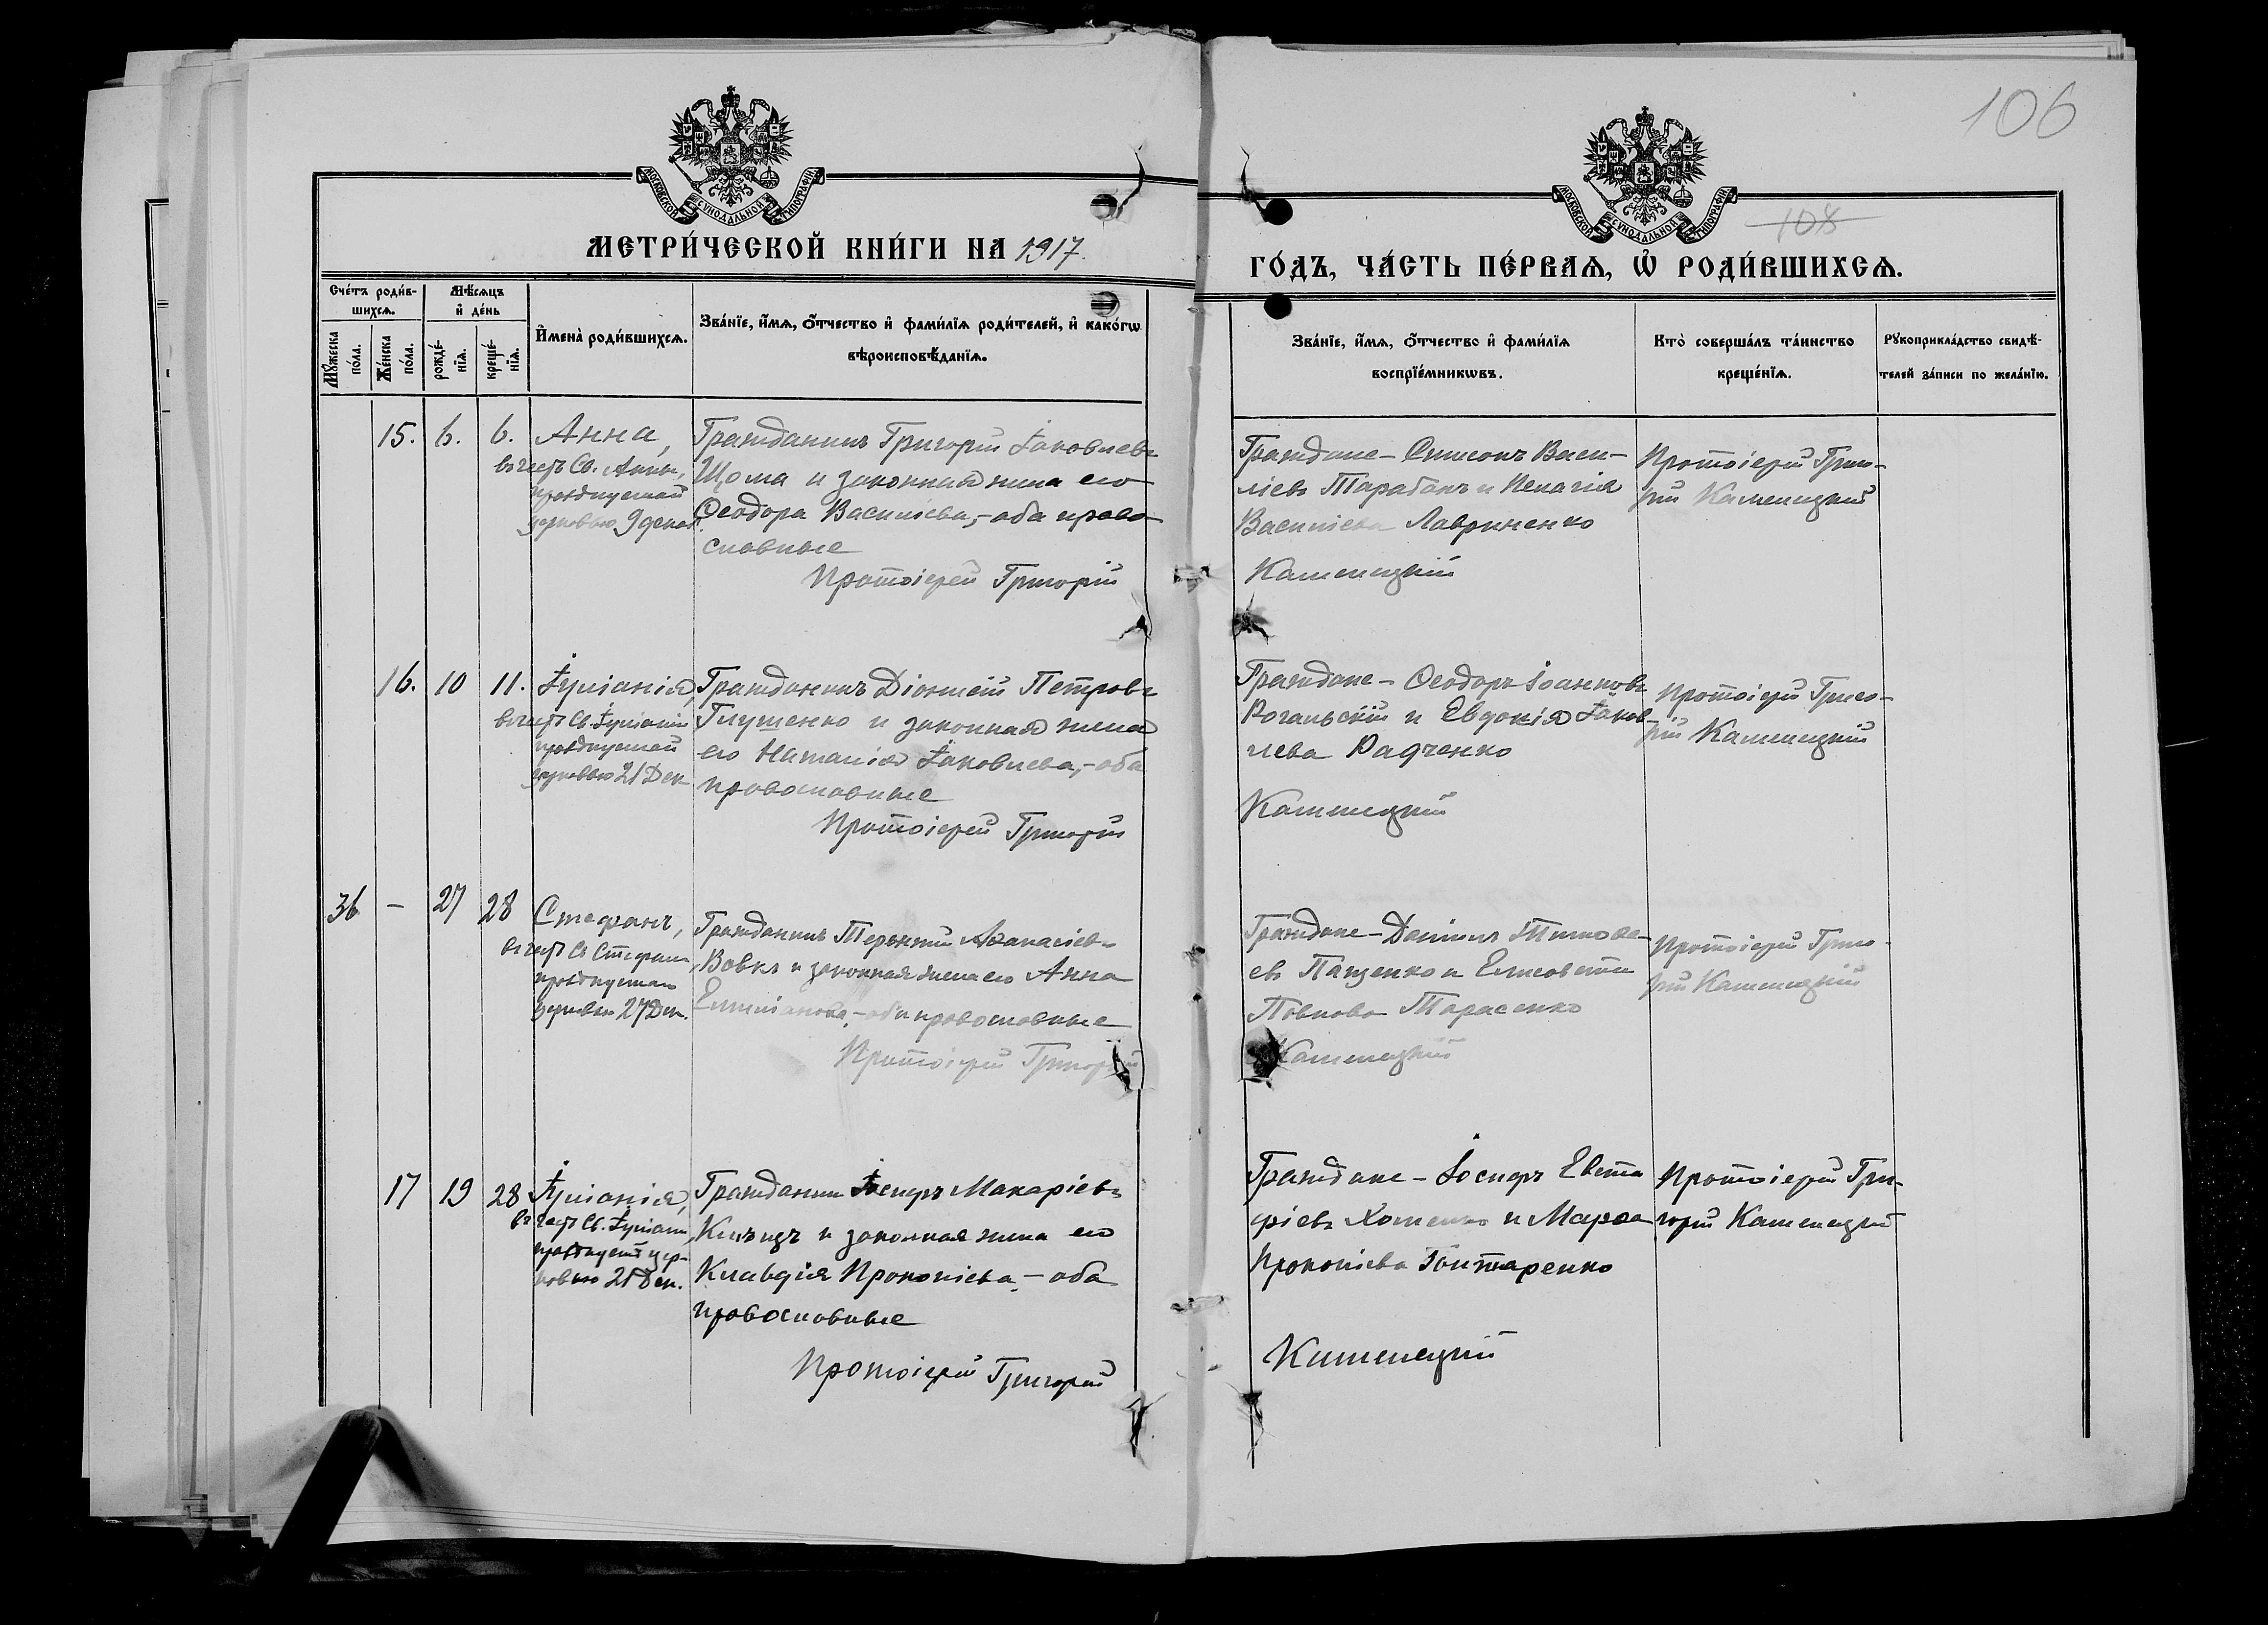 106
МОСКОВСКОЙ СѴНОДАЛЬНОЙ ТИПОГРАФІИ
МОСКОВСКОЙ СѴНОДАЛЬНОЙ ТИПОГРАФІИ
108
МЕТРИ́ЧЕСКОЙ КНИ́ГИ НА 1917.
ГО́ДЪ, ЧА́СТЬ ПЕ́РВАѦ, Ѡ҆ РОДИ́ВШИХСѦ.
Сче́тъ роди́в-
шихсѧ.
Мѣ́сѧцъ
и҆ де́нь
Мꙋ́жеска
по́ла.
Же́нска
по́ла.
рожде́-
нїѧ.
креще́-
нїѧ.
И҆мена̀ роди́вшихсѧ.
Зва́нїе, и҆́мѧ, ѻ҆́тчество и҆ фами́лїѧ роди́телей, и҆ како́гѡ
вѣроисповѣ́данїѧ.
Зва́нїе, и҆́мѧ, ѻ҆́тчество и҆ фами́лїѧ
воспрїе́мникѡвъ.
Кто̀ соверша́лъ та́инство
креще́нїѧ.
Рꙋкоприкла́дство свидѣ́-
телей за́писи по жела́нїю.
15. 6. 6. Анна,
въ честь Св. Анны,
празднуемой
церковью 9 декаб.
Гражданинъ Григорій Іаковлевъ
Щома и законная жена его
Ѳеодора Василіева,- оба право-
славные
Протоіерей Григорій
Граждане - Симеонъ Васи-
ліевъ Тарабанъ и Пелагія
Василіева Лавриненко
Каменецкій
Протоіерей Григо-
рій Каменецкій
16. 10 11. Іуліанія,
въ честь Св. Іуліаніи
празднуемой
церковью 21 Дек.
Гражданинъ Діонисій Петровъ
Глущенко и законная жена
его Наталія Іаковлева,- оба
православные
Протоіерей Григорій
Граждане - Ѳеодоръ Іоанновъ
Рогальскій и Евдокія Іаков-
лева Радченко
Каменецкій
Протоіерей Григо-
рій Каменецкій
36 - 27 28 Стефанъ,
въ честь Св Стефана,
празднуемаго
церковью 27 Дек.
Гражданинъ Терентій Аѳанасіевъ
Вовкъ и законная жена его Анна
Емиліанова,- оба православные
Протоіерей Григорій
Граждане - Даніилъ Тимоѳе-
евъ Пащенко и Елисавета
Павлова Тарасенко
Каменецкій
Протоіерей Григо-
рій Каменецкій
17 19 28 Іуліанія,
въ честь Св. Іуліаніи,
празднуем. цер-
ковью 21 Дек.
Гражданинъ Іосифъ Макаріевъ
и законная жена его
Клавдія Прокопіева,- оба
православные
Протоіерей Григорій
Граждане - Іосифъ Евста-
фіевъ Хоменко и Марѳа
Прокопіева Гонтаренко
Каменецкій
Протоіерей Гри-
горій Каменецкій